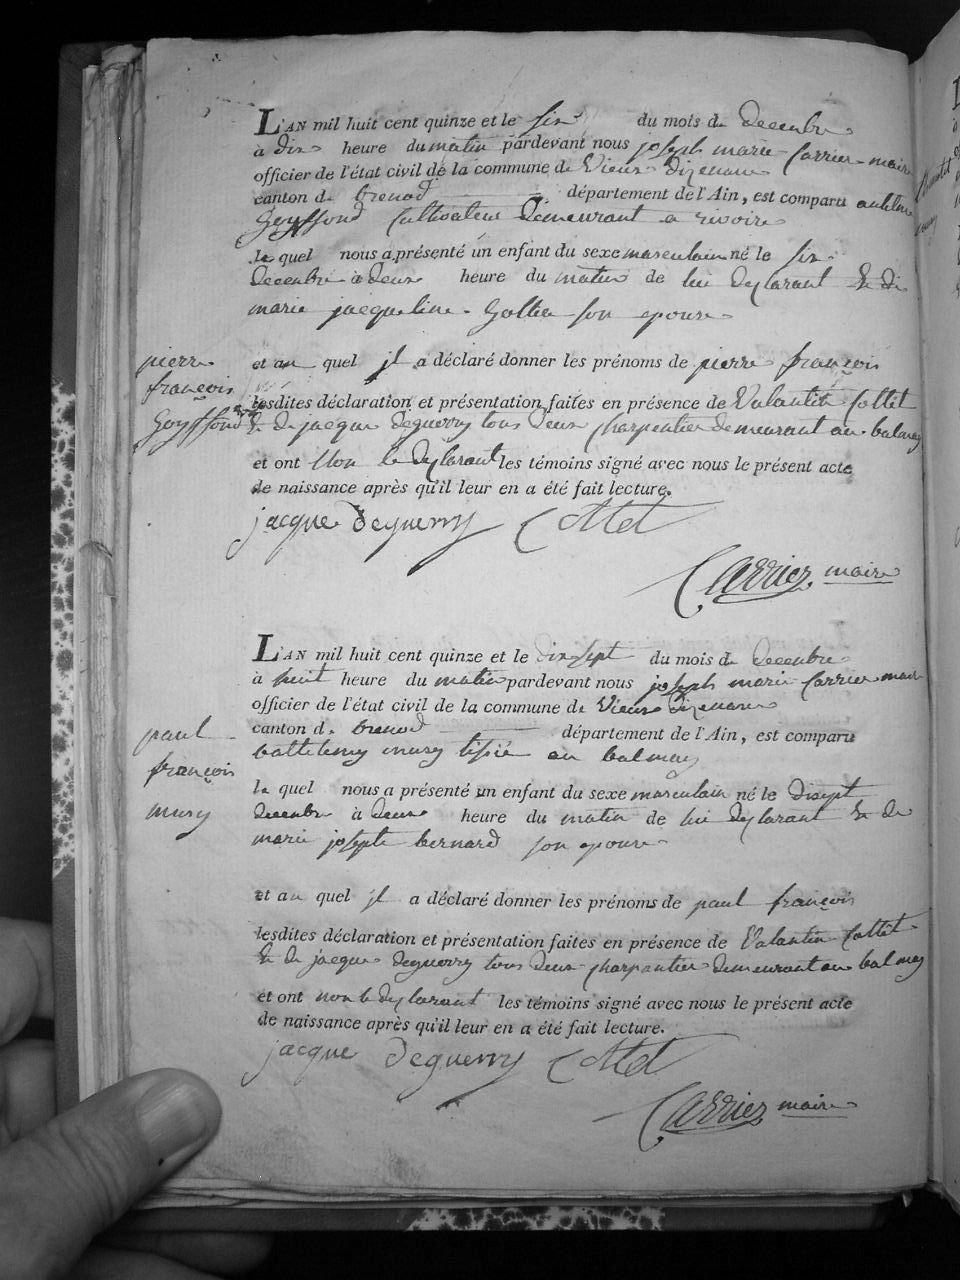 L'AN mil huit cent quinze et le six du mois de decembre
à dix heure du matin pardevant nous joseph marie Carrier maire
officier de l'état civil de la commune de Vieux dizenave
canton de brenod département de l'Ain, est comparu anthlme
Goyffond Cultivateur Demeurant a rivoire
le quel nous a présenté un enfant du sexe masculain né le six
decembre à deux heure du matin de lui deylarant & de
marie jacqueline Golliei son epouse
pierre
françois
Goyffond
et au quel jl a déclaré donner les prénoms de pierre françois
lesdites déclaration et présentation faites en présence de Valantin Collet
& de jacque deguerry tous deux charpentier demeurant au balmay
et ont Non le deylarant les témoins signé avec nous le présent acte
de naissance après qu'il leur en a été fait lecture.
jacque deguerry Collet
Carrier maire
L'AN mil huit cent quinze et le dix sept du mois de decembre
à huit heure du matin pardevant nous joseph marie Carrier maire
officier de l'état civil de la commune de Vieux dizenave
canton de brenod département de l'Ain, est comparu
battelemy mury tissié au balmay
paul
françois
mury
le quel nous a présenté un enfant du sexe masculain né le disept
decembre à deux heure du matin de lui deylarant & de
marie josephte bernard son epouse
et au quel jl a déclaré donner les prénoms de paul françois
lesdites déclaration et présentation faites en présence de Valantin Collet
& de jacque deguerry tous deux charpantier demeurant au balmay
et ont non le deylarant les témoins signé avec nous le présent acte
de naissance après qu'il leur en a été fait lecture.
jacque deguerry Collet
Carrier maire